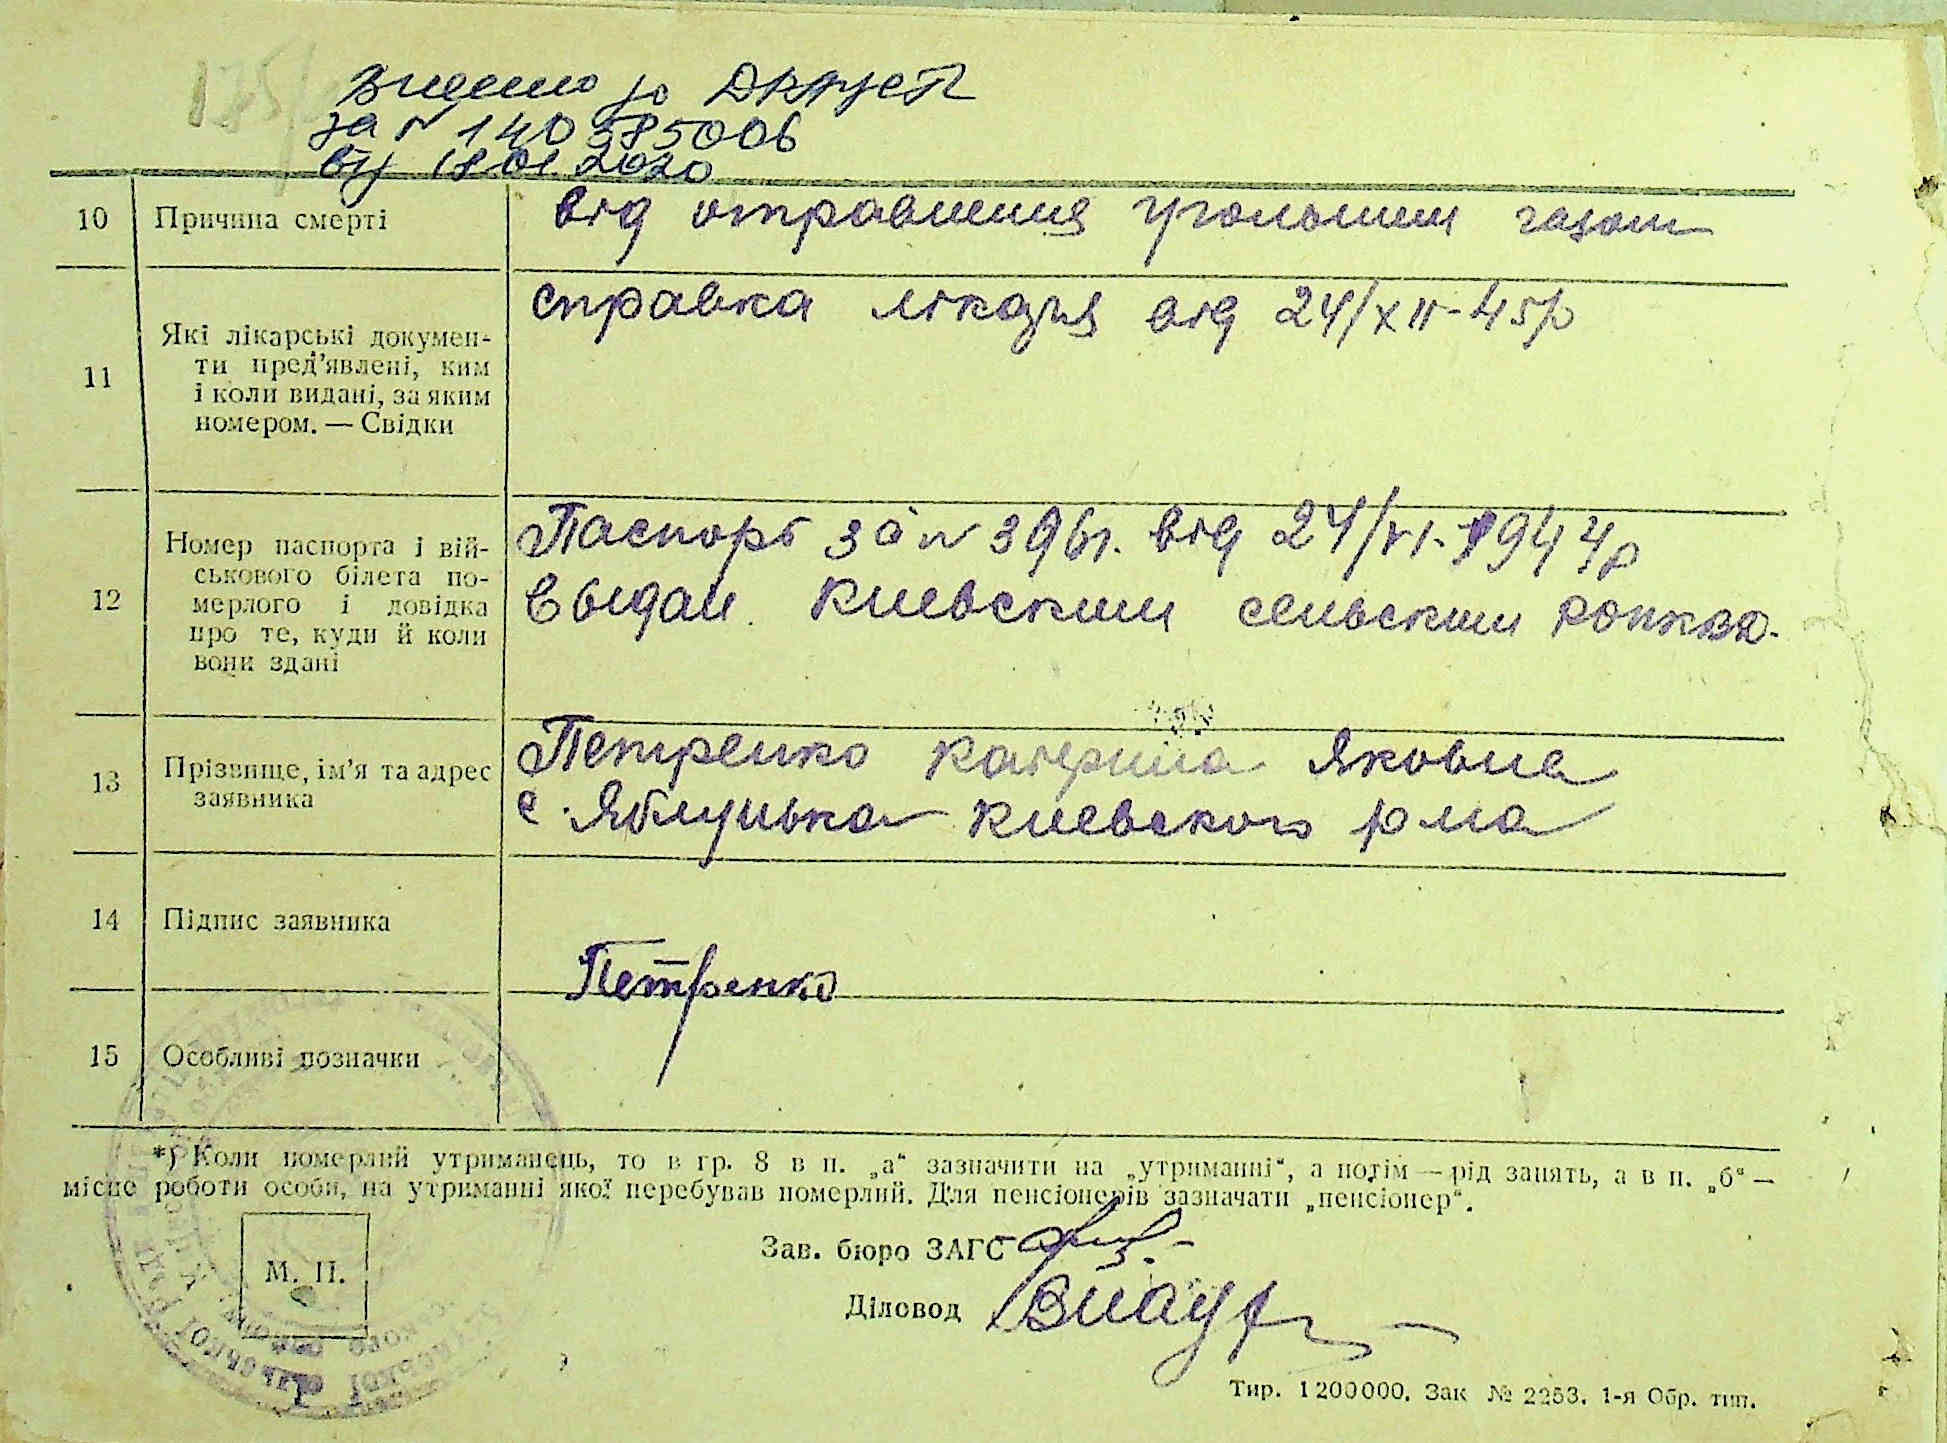 внесено до ДРАЦСГ
за № 140585006
від 18.01.2020
10 Причина смерті
від отравления угольним газом
11 Які лікарські докумен-
ти пред'явлені, ким
і коли видані, за яким
номером. — Свідки
справка лікаря від 24/XII-45р
12 Номер паспорта і вій-
ськового білета по-
мерлого і довідка
про те, куди й коли
вони здані
Паспорт за № 3961. від 24/VI-1944р
выдан. Киевским сельским
13 Прізвище, ім'я та адрес
заявника
Петренко Катерина Яковна
с. Яблунька Киевского р-на
14 Підпис заявника
Петренко
15 Особливі позначки
*) Коли померлий утриманець, то в гр. 8 в п. „а“ зазначити на „утриманні“, а потім — рід занять, а в п. „б“ —
місце роботи особи, на утриманні якої перебував померлий. Для пенсіонерів зазначати „пенсіонер“.
Зав. бюро ЗАГС
М. П.
Діловод
Тир. 1200000. Зак № 2253. 1-я Обр. тип.